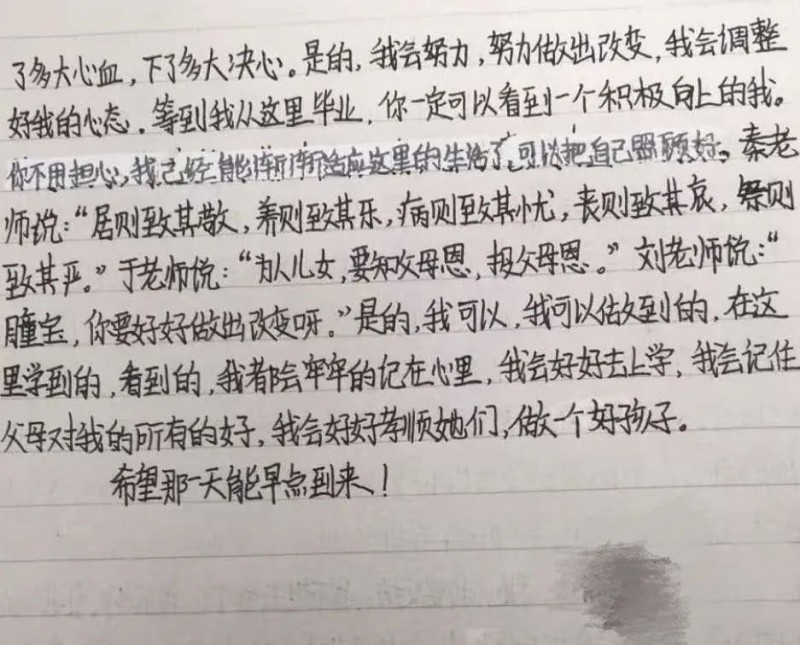 了多大心血，下了多大决心。是的，我会努力，努力做出改变，我会调整
好我的心态。等到我从这里毕业，你一定可以看到一个积极向上的我。
你不用担心，我已经能渐渐适应这里的生活了，可以把自己照顾好。秦老
师说：“居则致其敬，养则致其乐，病则致其忧，丧则致其哀，祭则
致其严。”于老师说：“为人儿女，要知父母恩，报父母恩。”刘老师说：“
瞳宝，你要好好做出改变呀。”是的，我可以，我可以做到的，在这
里学到的，看到的，我都会牢牢的记在心里，我会好好去上学，我会记住
父母对我的所有的好，我会好好孝顺她们，做一个好孩子。
希望那一天能早点到来！